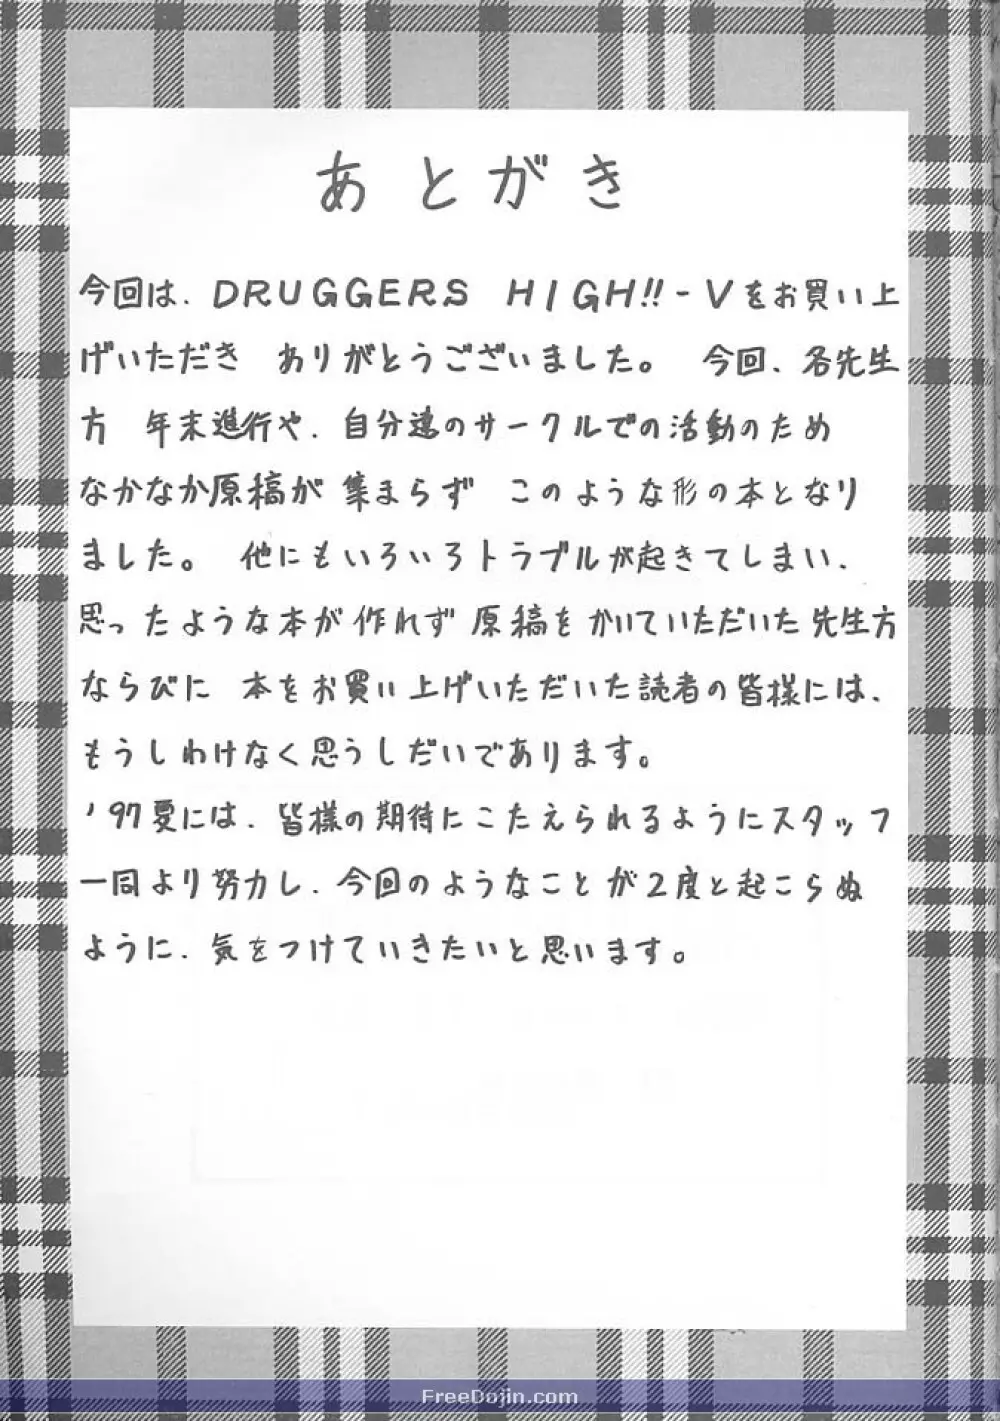 あとがき
今回は、DRUGGERS HIGH!!-Vをお買い上
げいただき ありがとうございました。 今回、各先生
方 年末進行や、自分達のサークルでの活動のため
なかなか原稿が 集まらず このような形の本となり
ました。 他にもいろいろトラブルが起きてしまい、
思ったような本が作れず 原稿をかいていただいた先生方
ならびに 本をお買い上げいただいた読者の皆様には、
もうしわけなく思うしだいであります。
'97夏には、皆様の期待にこたえられるようにスタッフ
一同より努力し、今回のようなことが2度と起こらぬ
ように、気をつけていきたいと思います。
FreeDojin.com